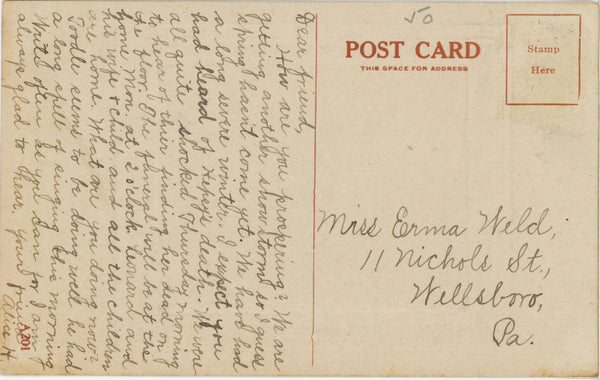 50
POST CARD
THIS SPACE FOR ADDRESS
Stamp
Here
Dear friend,
How are you prospering? We are
getting another snow storm so I guess
spring hasn't come yet. We have had
a long severe winter. I expect you
had heard of Hepsy's death. We were
all quite shocked Thursday morning
to hear of thier finding her dead on
the floor. The funeral will be at the
home Mon. at 2 o'clock. Leonard and
his wife & child and all the children
are home. What are you doing now?
Toodle seems to be doing well he had
a long spell of singing this morning
Write often as you can for I am
always glad to hear. Your friend
Alice H.
A701
Miss Erma Weld,
11 Nichols St.,
Wellsboro,
Pa.